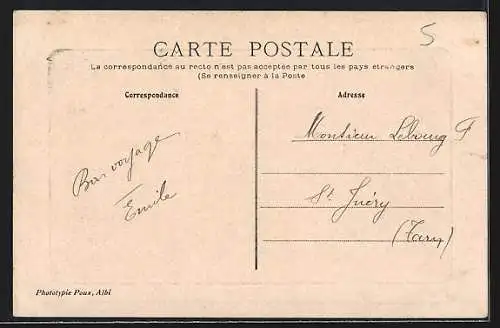 5
CARTE POSTALE
La correspondance au recto n'est pas acceptée par tous les pays étrangers
(Se renseigner à la Poste
Correspondance
Adresse
Bon voyage
Emile
Monsieur Lebourg F
St Juéry
(Tarn)
Phototypie Poux, Albi